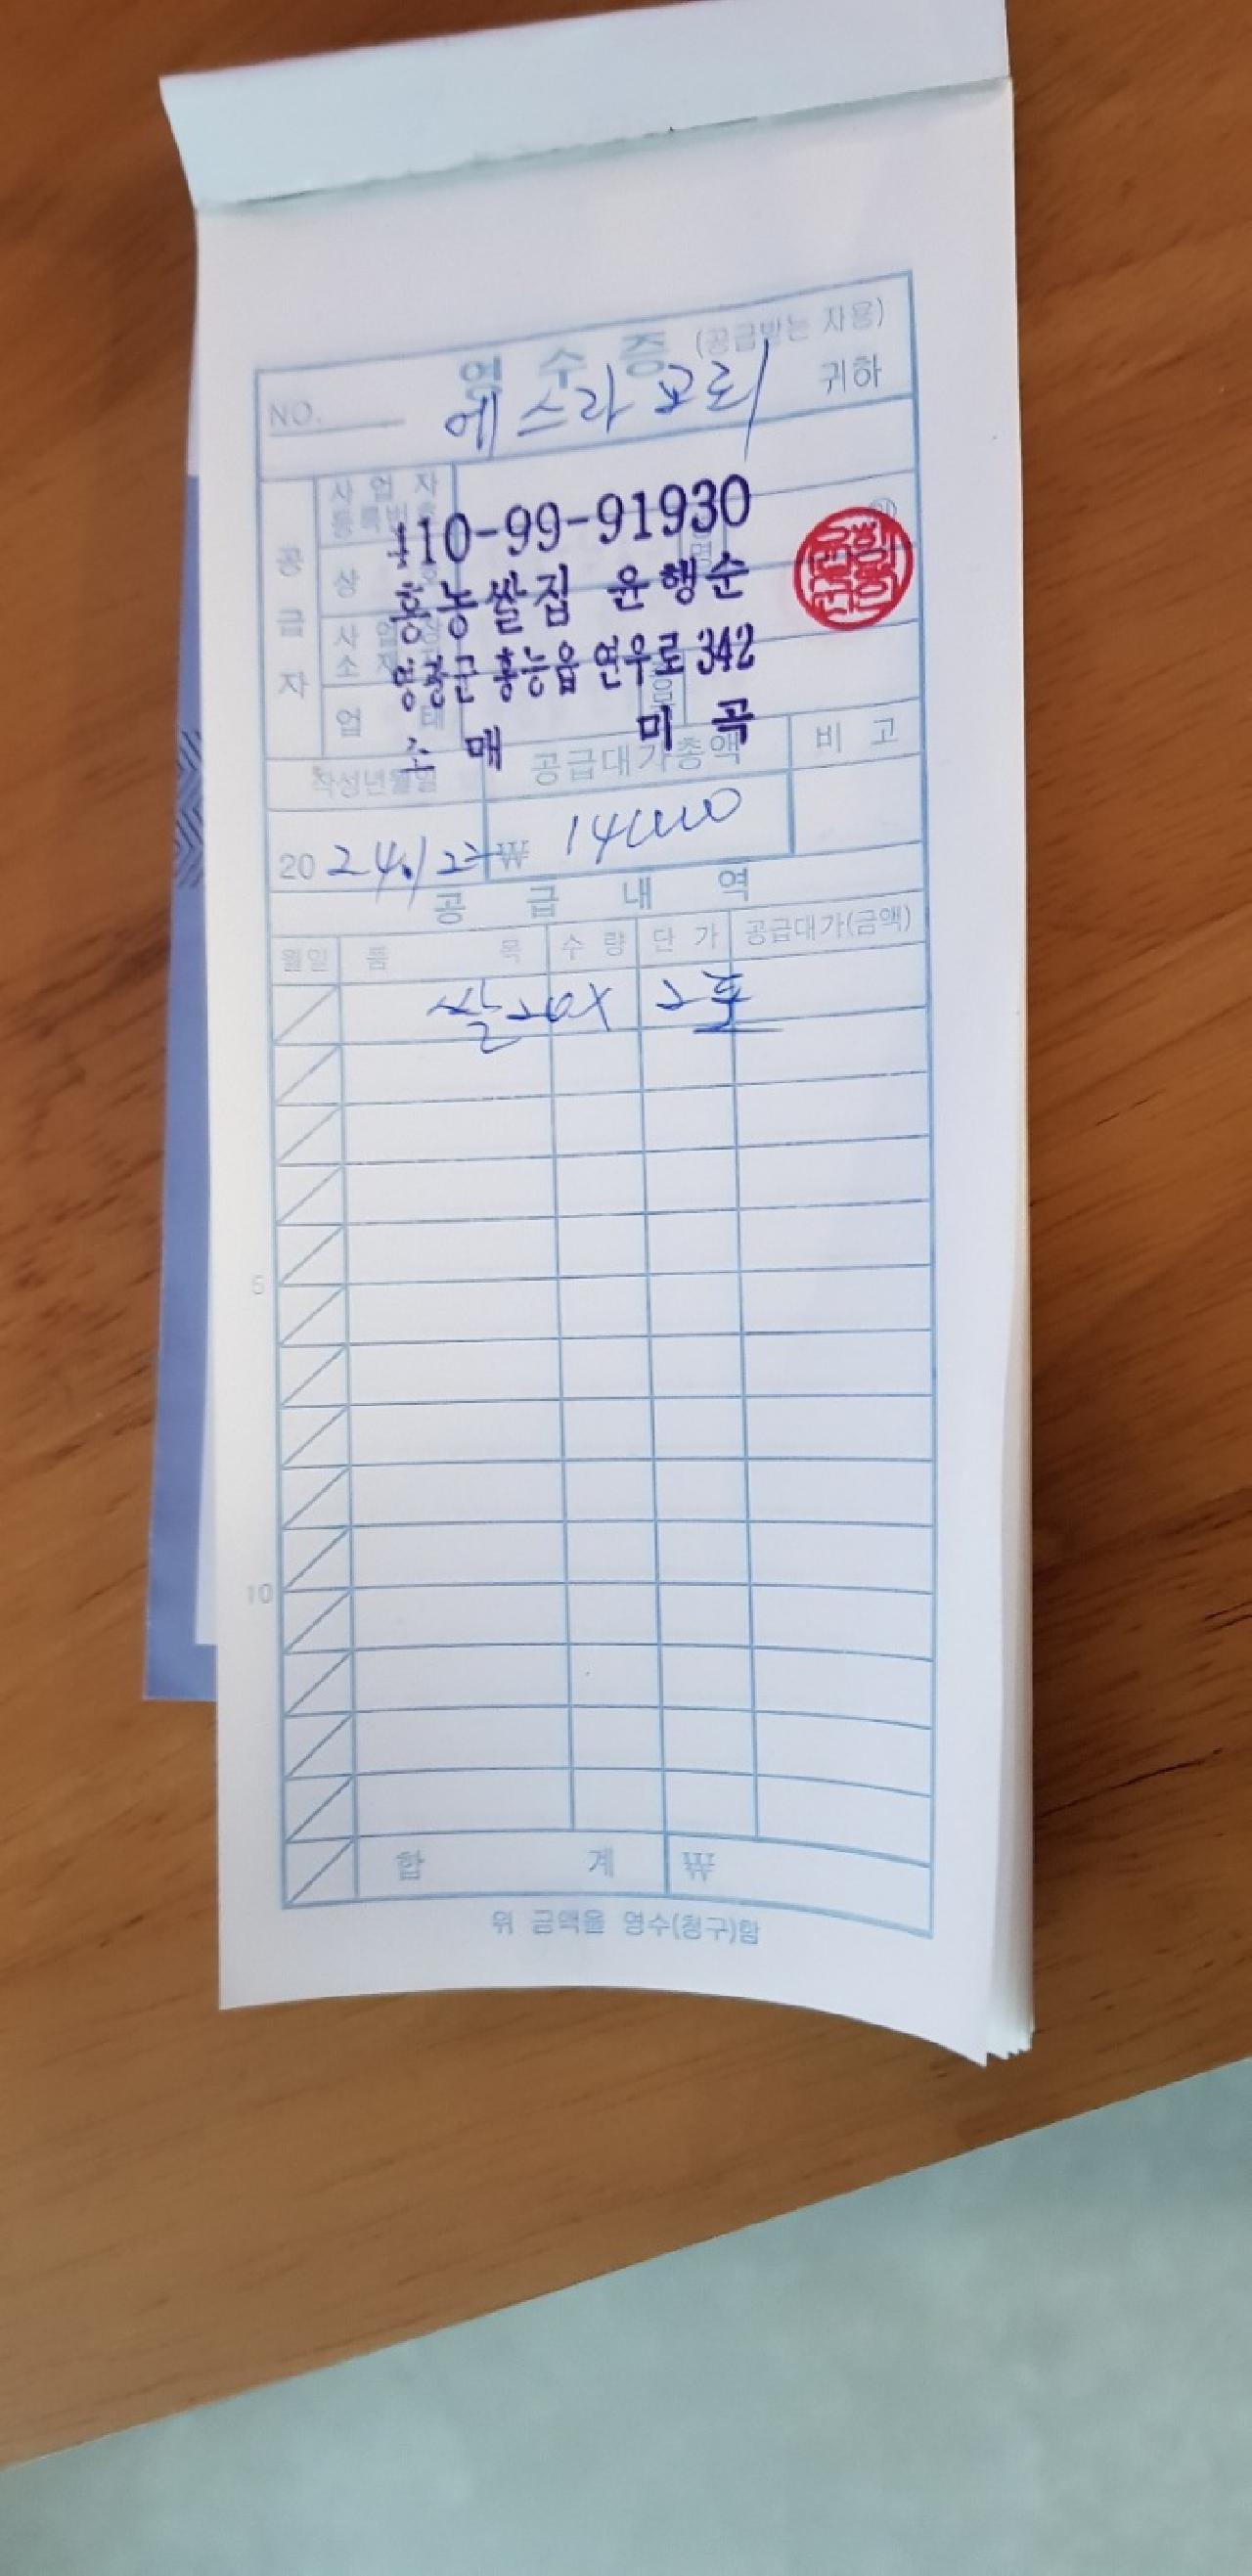 영 수 증 (공급받는 자용)
NO. 에스라교회 귀하
공급자
사업자
등록번호
110-99-91930
상 호
홍농쌀집 윤행순
사업장
소재지
영광군 홍농읍 연우로 342
업 태
소 매 미 곡
작성년월일 공급대가총액 비 고
20 24.12 ₩ 140000
공 급 내 역
월일 품 목 수 량 단 가 공급대가(금액)
쌀 20X 2포
5
10
합 계 ₩
위 금액을 영수(청구)함